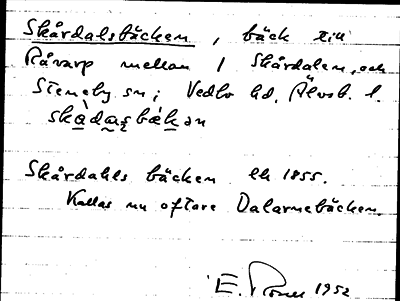 Skårdalsbäcken, bäck till
Råvarp mellan / Skårdalen, och
Steneby sn; Vedbo hd, Älvsb. l.
Skårdahls bäcken Ek 1855.
Kallas nu oftare Dalarnebäcken.
E. 1952